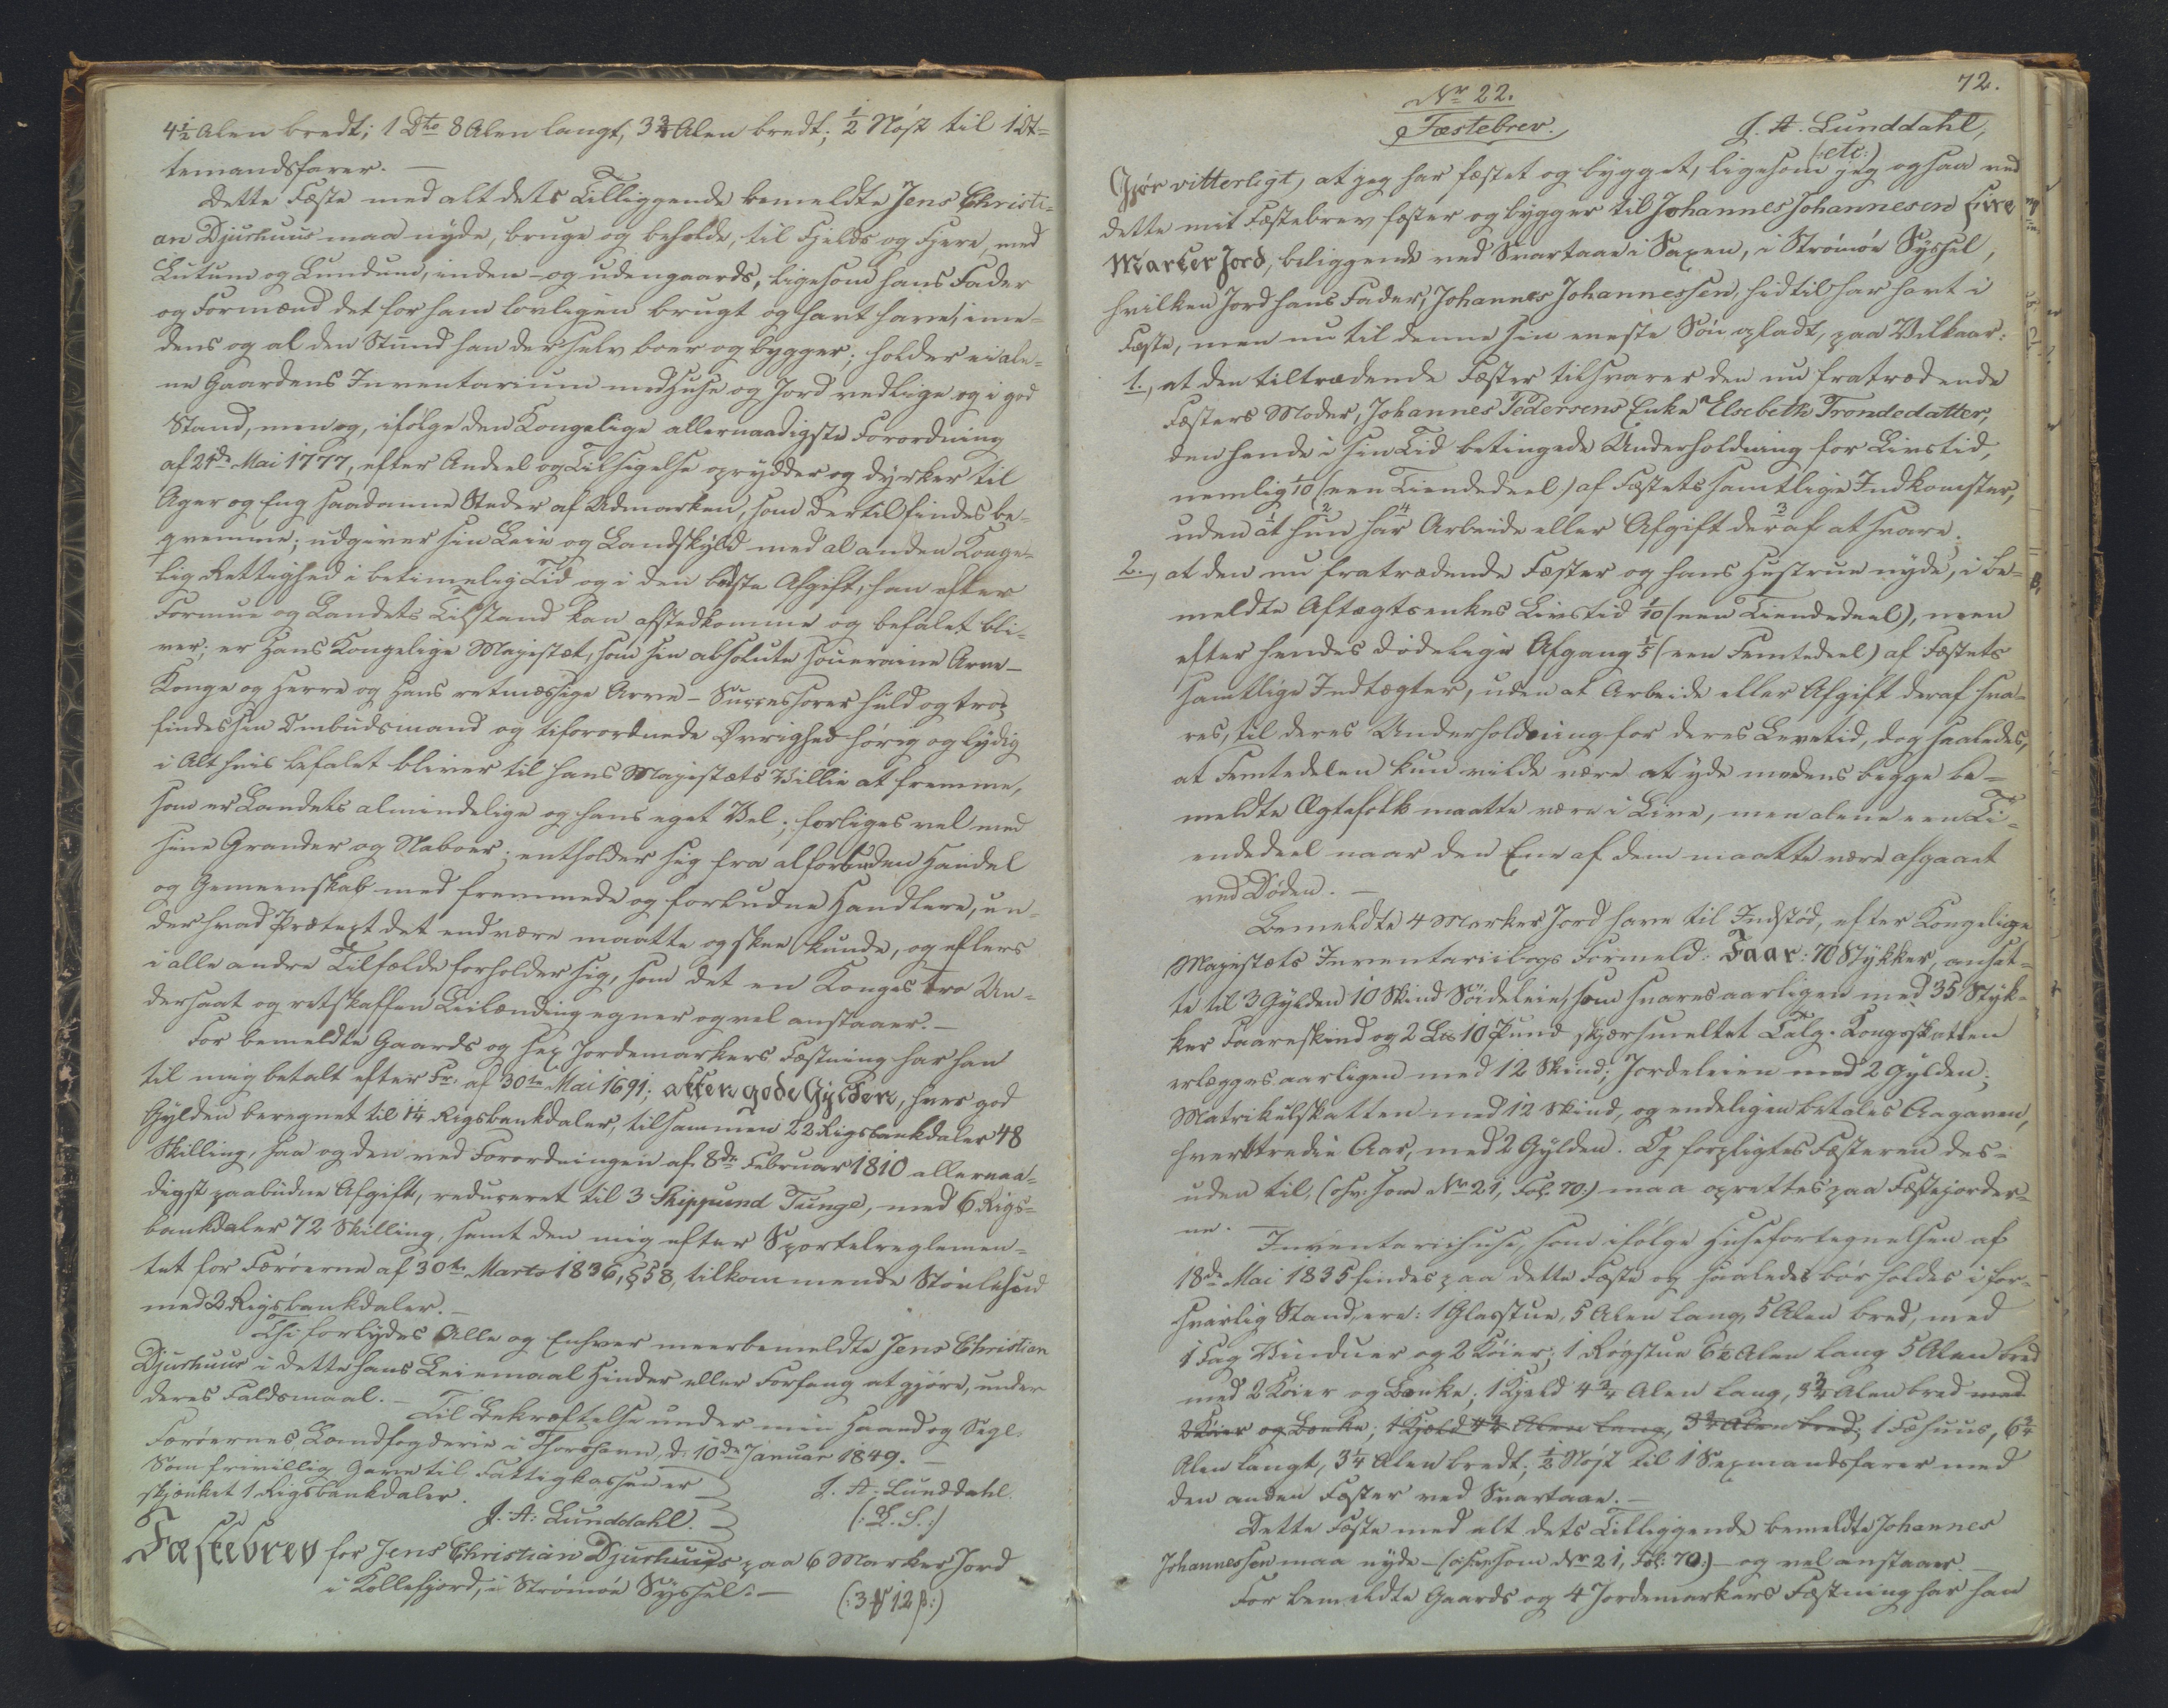 4½ Alen bredt; 1 Dto 8 Alen langt, 3¾ Alen bredt; ½ Nøst til 1 Ot-
temandsfarer. —
Dette Fæste med alt dets Tilliggende bemeldte Jens Christi-
an Djurhuus maa nyde, bruge og beholde, til Fjelds og Fjere, med
Lutum og Lundum, inden- og udengaards, ligesom hans Fader
og Formænd det for ham lovligen brugt og havt have, ime-
dens og al den Stund han der selv boer og bygger; holder ei ale-
ne Gaardens Inventarium med Huse og Jord vedlige og i god
Stand, men og, ifølge den Kongelige allernaadigste Forordning
af 21de Mai 1777, efter Andeel og Tilsigelse oprydder og dyrker til
Ager og Eng saadanne Steder af Udmarken, som dertil findes be-
qvemme; udgiver sin Leie og Landskyld med al anden Konge-
lig Rettighed i betimelig Tid og i den bedste Afgift, han efter
Formue og Landets Tilstand kan afstedkomme og befalet bli-
ver; er Hans Kongelige Majestæt, som sin absolute souveraine Arve-
Konge og Herre og Hans retmæssige Arve-Successorer huld og tro,
findes sin Ombudsmand og tilforordnede Øvrighed hørig og lydig
i Alt hvis befalet bliver til Hans Majestæts Villie at fremme,
som er Landets almindelige og hans eget Vel; forliges vel med
sine Grander og Naboer; entholder sig fra al forbuden Handel
og Gemeenskab med fremmede og forbudne Handlere, un-
der hvad Prætext det end være maatte og skee kunde, og ellers
i alle andre Tilfælde forholder sig, som det en Konges tro Un-
dersaat og retskaffen Leilænding egner og vel anstaaer. —
For bemeldte Gaards og sex Jordemarkers Fæstning har han
til mig betalt efter Fr. af 30te Mai 1691; atten gode Gylden, hver god
Gylden beregnet til 1¼ Rigsbankdaler, tilsammen 22 Rigsbankdaler 48
Skilling, saa og den ved Forordningen af 8de Februar 1810 allernaa-
digst paabudne Afgift, reduceret til 3 Skippund Tunge, med 6 Rigs-
bankdaler 72 Skilling, samt den mig efter Sportelreglemen-
tet for Færøerne af 30te Marts 1836, § 58, tilkommende Støvlehud
med 2 Rigsbankdaler. —
Thi forbydes Alle og Enhver meerbemeldte Jens Christian
Djurhuus i dette hans Leiemaal Hinder eller Forfang at gjøre, under
deres Faldsmaal. — Til Bekræftelse under min Haand og Segl.
Færøernes Landfogderie i Thorshavn, d: 10de Januar 1849. —
Som frivillig Gave til Fattigkassen er
skjænket 1 Rigsbankdaler.
J. A: Lunddahl.
J. A: Lunddahl.
(: L. S. :)
Fæstebrev for Jens Christian Djurhuus paa 6 Marker Jord
i Kollefjord, i Strømøe Syssel. —
(: 3 ₰ 12 β :)
72.
Nr 22.
Fæstebrev.
J. A. Lunddahl,
(: etc :)
Gjør vitterligt, at jeg har fæstet og bygget, ligesom jeg ogsaa ved
dette mit Fæstebrev fæster og bygger til Johannes Johannesen fire
Marker Jord, beliggende ved Svartaae i Saxen, i Strømøe Syssel,
hvilken Jord hans Fader, Johannes Johannessen, hidtil har havt i
Fæste, men nu til denne sin eneste Søn opladt, paa Vilkaar:
1., at den tiltrædende Fæster tilsvarer den nu fratrædende
Fæsters Moder, Johannes Pedersens Enke Elsebeth Trondedatter,
den hende i sin Tid betingede Underholdning for Livstid,
nemlig 1/10 (een Tiendedeel) af Fæstets samtlige Indkomster,
uden 1at 2hun 4har Arbeide eller Afgift 3deraf at svare.
2., at den nu fratrædende Fæster og hans Hustrue nyde, i be-
meldte Aftægtsenkes Livstid 1/10 (een Tiendedeel), men
efter hendes dødelige Afgang 1/5 (een Femtedeel) af Fæstets
samtlige Indtægter, uden at Arbeide eller Afgift deraf sva-
res, til deres Underholdning for deres Levetid, dog saaledes,
at Femtedelen kun vilde være at yde medens begge be-
meldte Ægtefolk maatte være i Live, men alene een Ti-
endedeel naar den Ene af dem maatte være afgaaet
ved Døden. —
Bemeldte 4 Marker Jord have til Indstød, efter Kongelige
Majestæts Inventariibogs Formeld: Faar: 70 Stykker, ansat-
te til 3 Gylden 10 Skind Søideleie, som svares aarligen med 35 Styk-
ker Faareskind og 2 Lis 10 Pund skjærsmeltet Talg. Kongsskatten
erlægges aarligen med 12 Skind; Jordeleien med 2 Gylden;
Matrikulskatten med 12 Skind, og endeligen betales Aagaven,
hvert tredie Aar, med 2 Gylden. Og forpligtes Fæsteren des-
uden til, (osv: som Nr 21, Fol. 70:) maa oprettes paa Fæstejorder-
ne. —
Inventariihuse, som ifølge Husefortegnelsen af
18de Mai 1835 findes paa dette Fæste og saaledes bør holdes i for-
svarlig Stand, ere: 1 Glasstue, 5 Alen lang, 5 Alen bred, med
1 Fag Vinduer og 2 Køier; 1 Røgstue 6½ Alen lang 5 Alen bred
med 2 Køier og Bænke; 1 Kjeld 4¾ Alen lang, 3¾ Alen bred med
2 Køier og Bænke; 1 Kjeld 4¾ Alen lang, 3¾ Alen bred; 1 Fæhuus, 6¾
Alen langt, 3¼ Alen bredt; ½ Nøst til 1 Sexmandsfarer med
den anden Fæster ved Svartaae. —
Dette Fæste med alt dets Tilliggende bemeldte Johannes
Johannessen maa nyde — (: osv: som Nr 21, Fol: 70:) — og vel anstaaer. —
For bemeldte Gaards og 4 Jordemarkers Fæstning har han